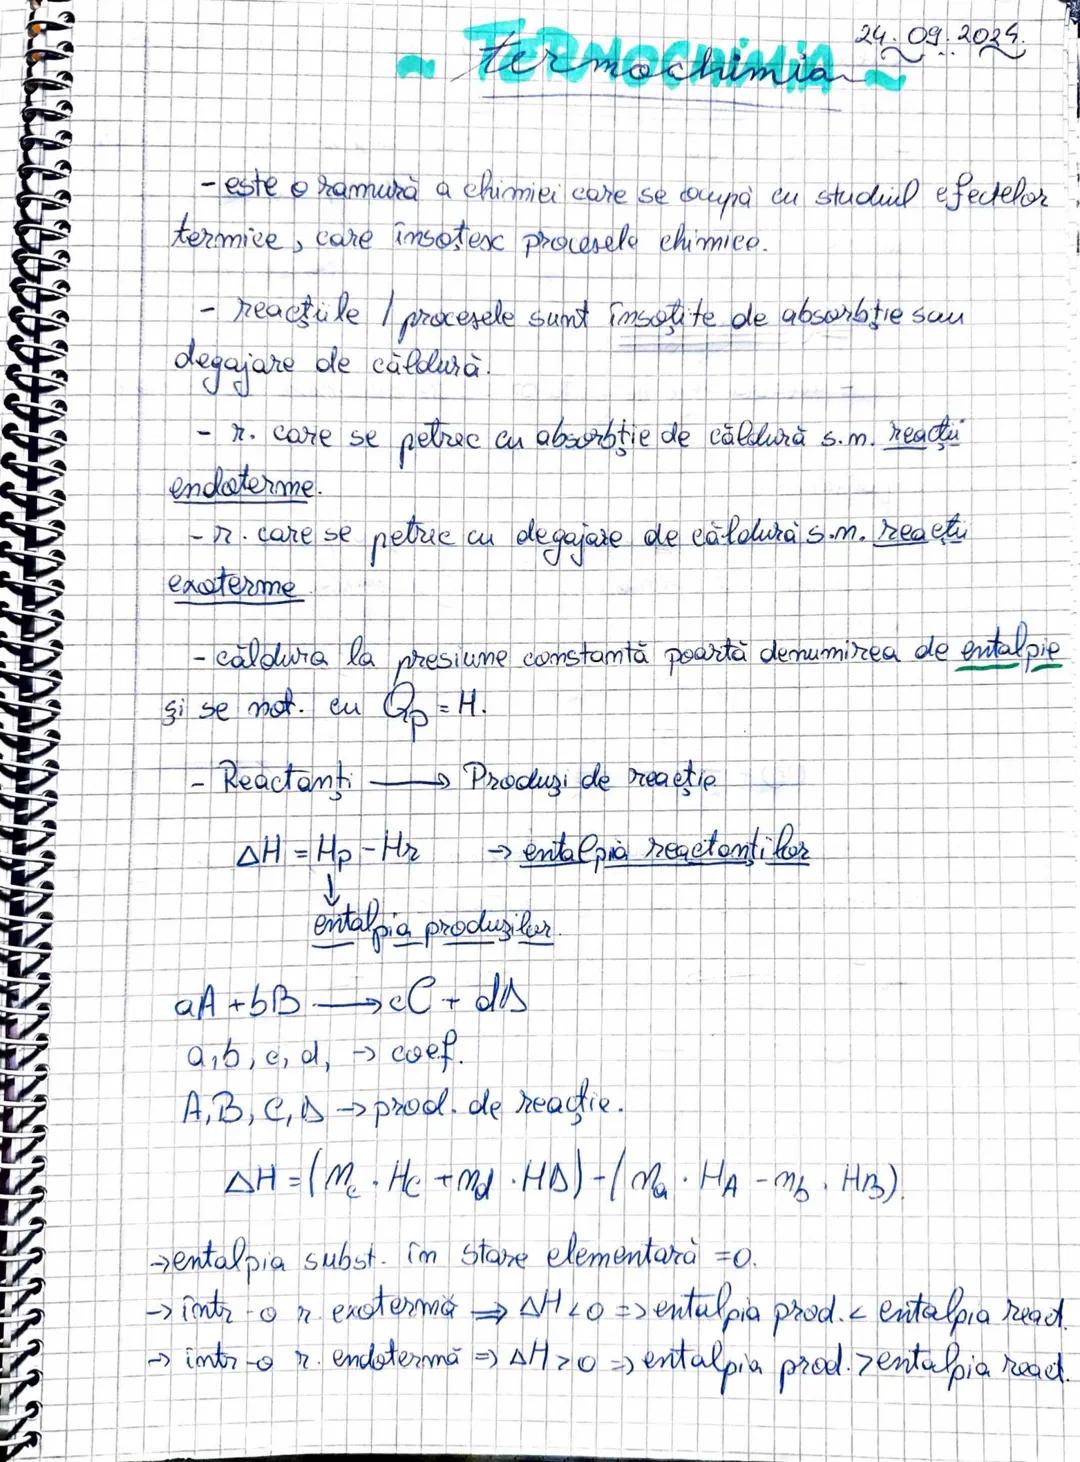 24.09.2024.
~ TERMOCHIMIA ~
termochimia
- este o ramură a chimiei care se ocupă cu studiul efectelor
termice, care însoțesc procesele chimice.
- reacțiile / procesele sunt însoțite de absorbție sau
degajare de căldură.
- r. care se petrec cu absorbție de căldură s.m. reacții
endoterme.
- r. care se petrec cu degajare de căldură s.m. reacții
exoterme
- căldura la presiune constantă poartă denumirea de entalpie
și se not. cu Qp = H.
- Reactanți → Produși de reacție
ΔH = Hp - Hr → entalpia reactanților
↓
entalpia produșilor.
aA + bB → cC + dD
a, b, c, d, → coef.
A, B, C, D → prod. de reacție.
ΔH = (nc · Hc + nd · HD) - (na · HA - nb · HB).
→ entalpia subst. în stare elementară = 0.
→ într-o r. exotermă ⇒ ΔH < 0 ⇒ entalpia prod. < entalpia react.
→ într-o r. endotermă ⇒ ΔH > 0 ⇒ entalpia prod. > entalpia react.